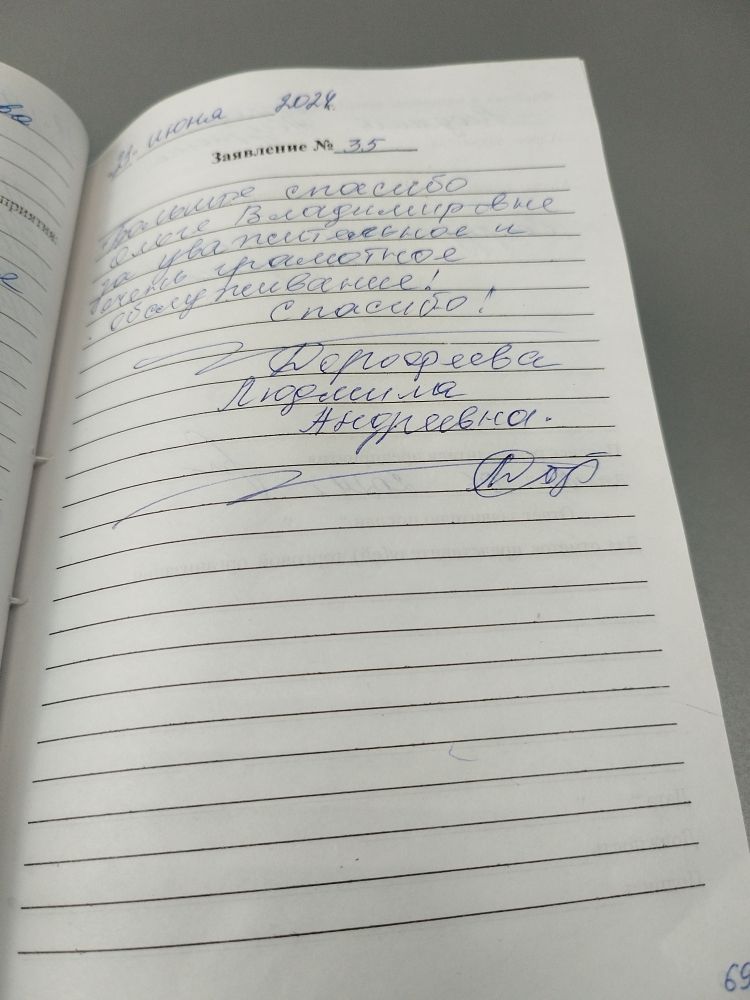 21. июня 2024г.
Заявление № 35
Большое спасибо
Ольге Владимировне
за уважительное и
очень грамотное
обслуживание!
Спасибо!
Дорофеева
Людмила
Андреевна.
приятия:
69